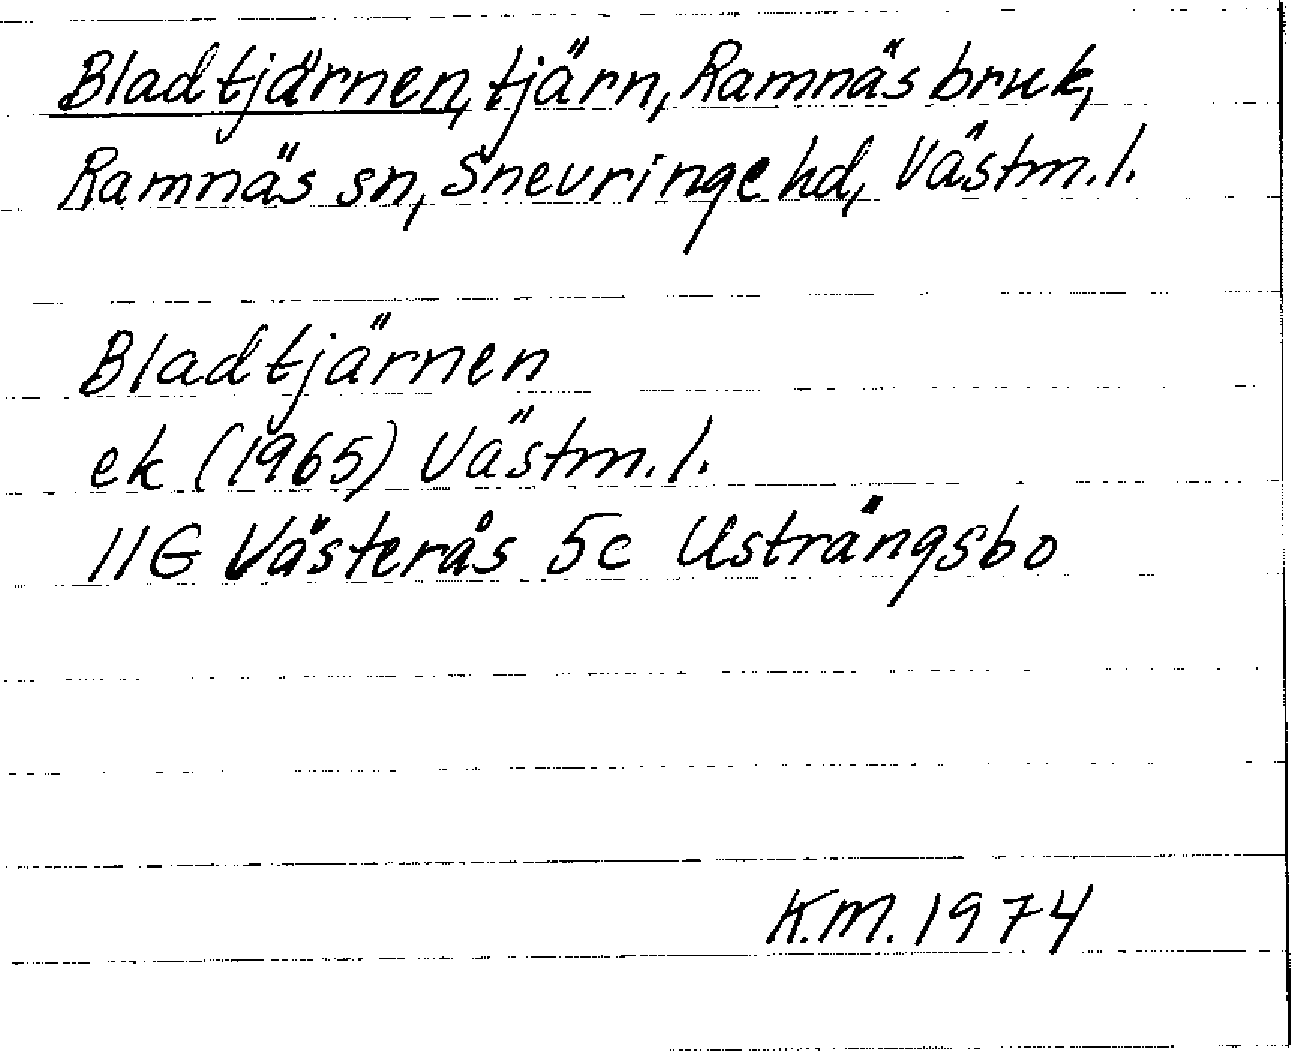 Bladtjärnen, tjärn, Ramnäs bruk,
Ramnäs sn, Snevringe hd, Västm.l.
Bladtjärnen
ek (1965) Västm.l.
11G Västerås 5c Usträngsbo
K.M. 1974